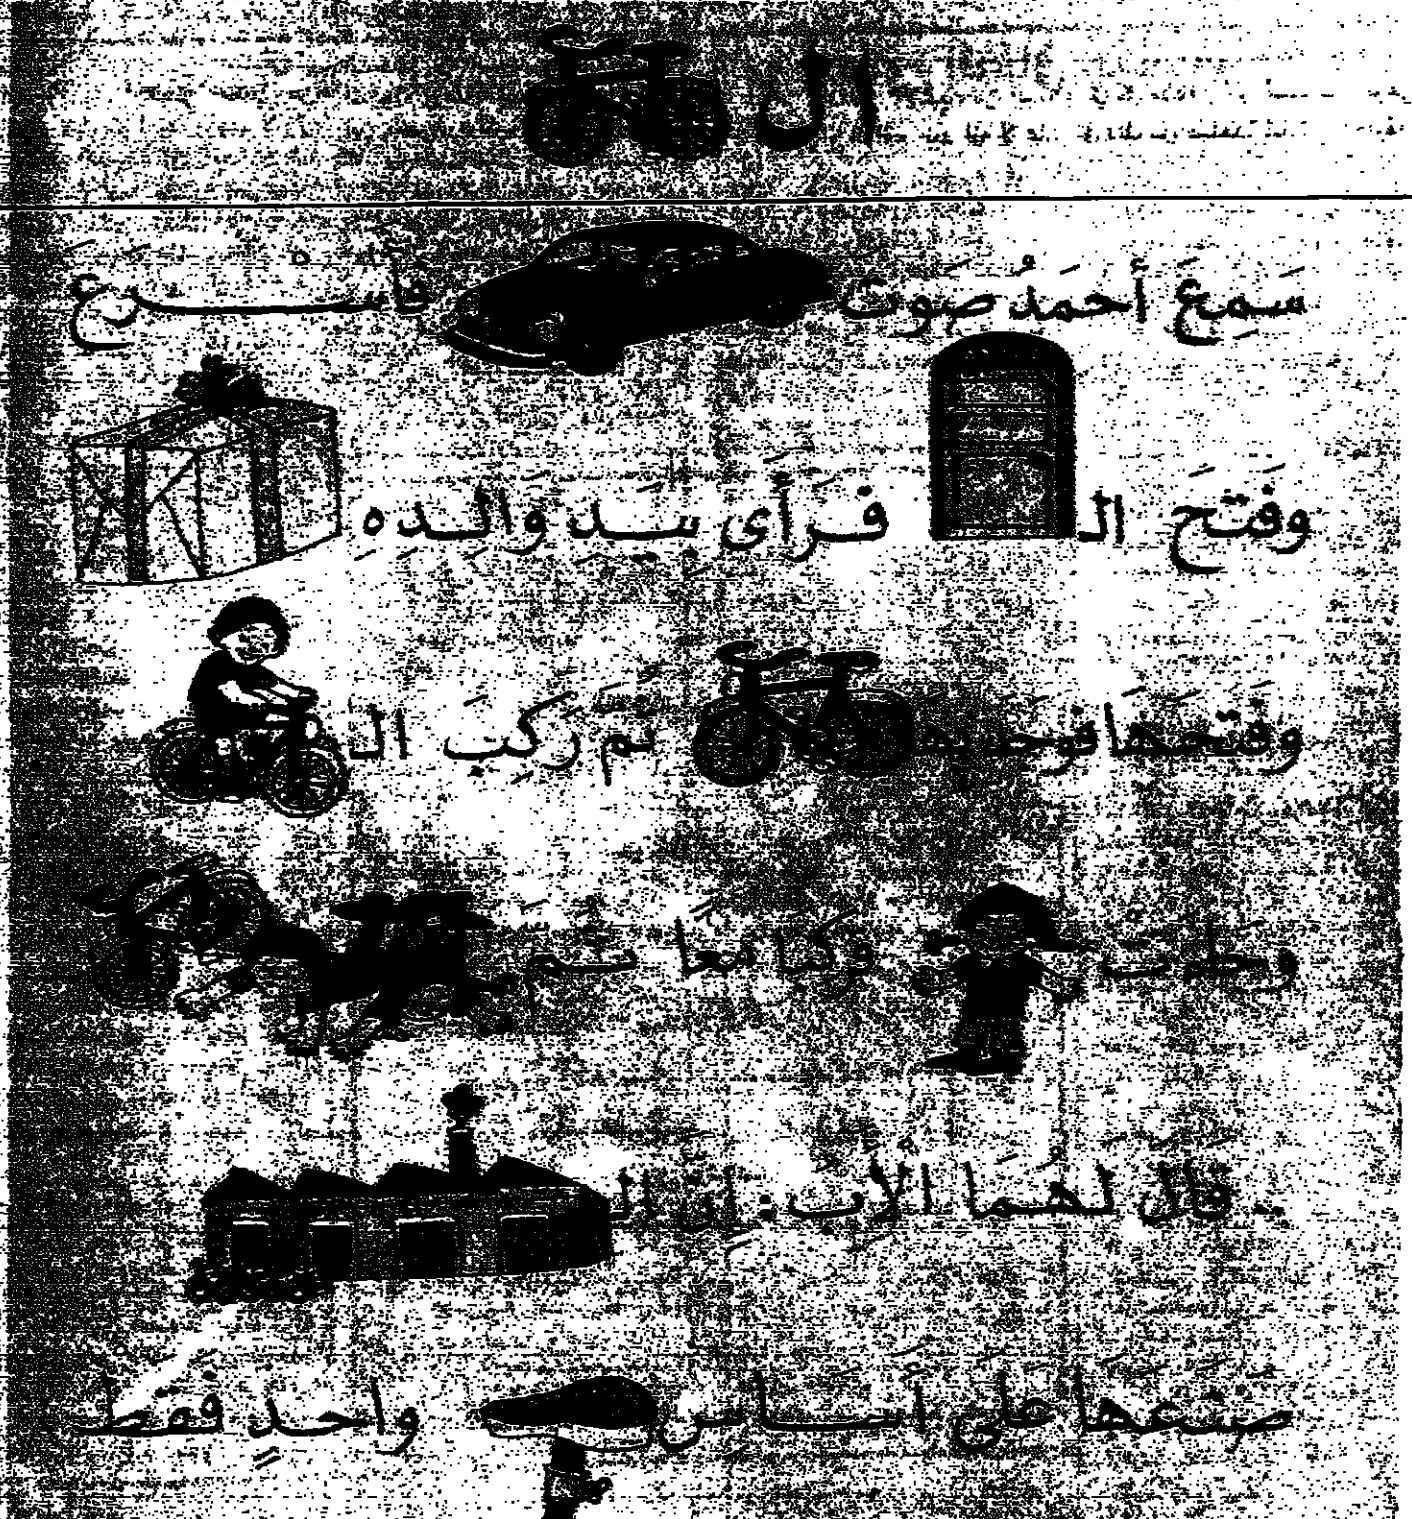 ال
سَمِعَ أَحمَدُ صَوتَ فَأَسْـرَعَ
وَفَتَحَ الـ فَـرَأَى بِيَـدِ وَالِـدِهِ
وَفَتَحَهَا فَوَجَدَ بِهَا ثُم رَكِبَ الـ
وَجَلَسَتْ مَعًا ثُـم
.. قَالَ لَهُمَا الْأَبُ : إِن الـ
صَنَعَهَا عَلَى أَسَـاسِ وَاحِدٍ فَقَطْ